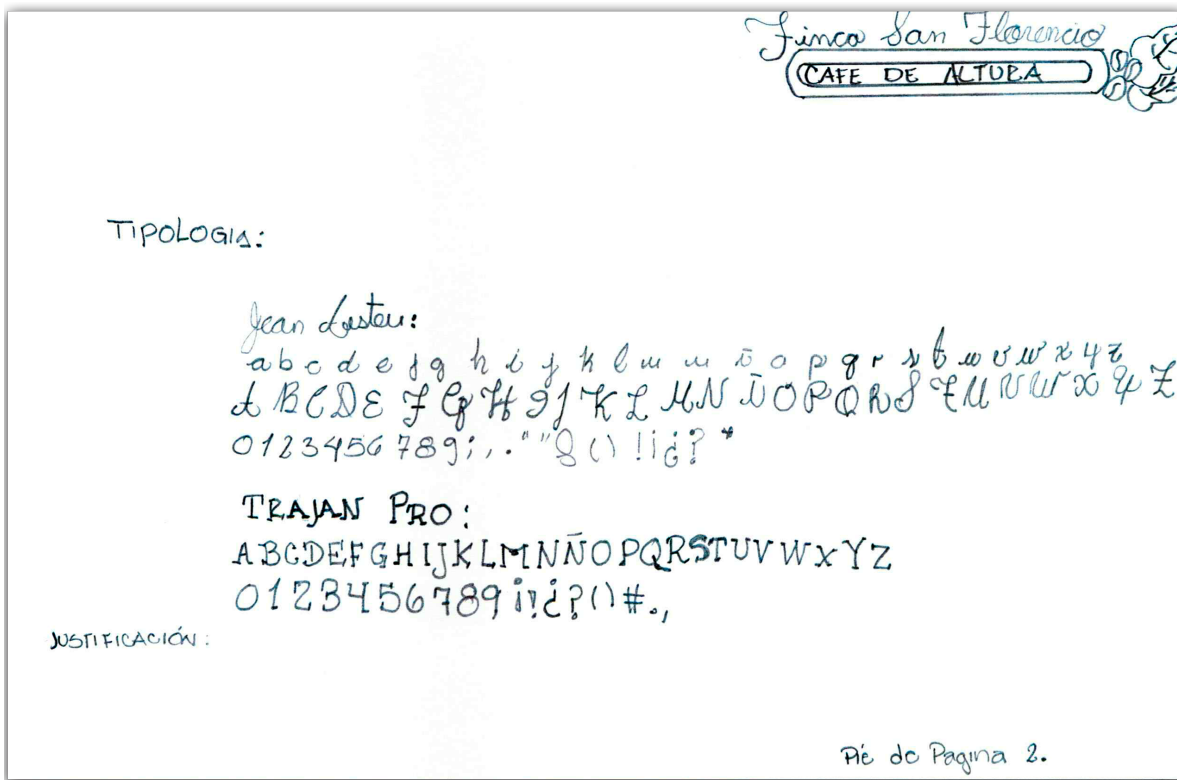 Finca San Florencio
CAFE DE ALTURA
TIPOLOGIA:
Jean Lusten:
a b c d e f g h i j k l m n ñ o p q r s t u v w x y z
A B C D E F G H I J K L M N Ñ O P Q R S T U V W X Y Z
0123456789;,.""&()!¡¿?*
TRAJAN PRO:
ABCDEFGHIJKLMNÑOPQRSTUVWXYZ
0123456789¡!¿?()#.,
JUSTIFICACIÓN:
Pié de Pagina 2.